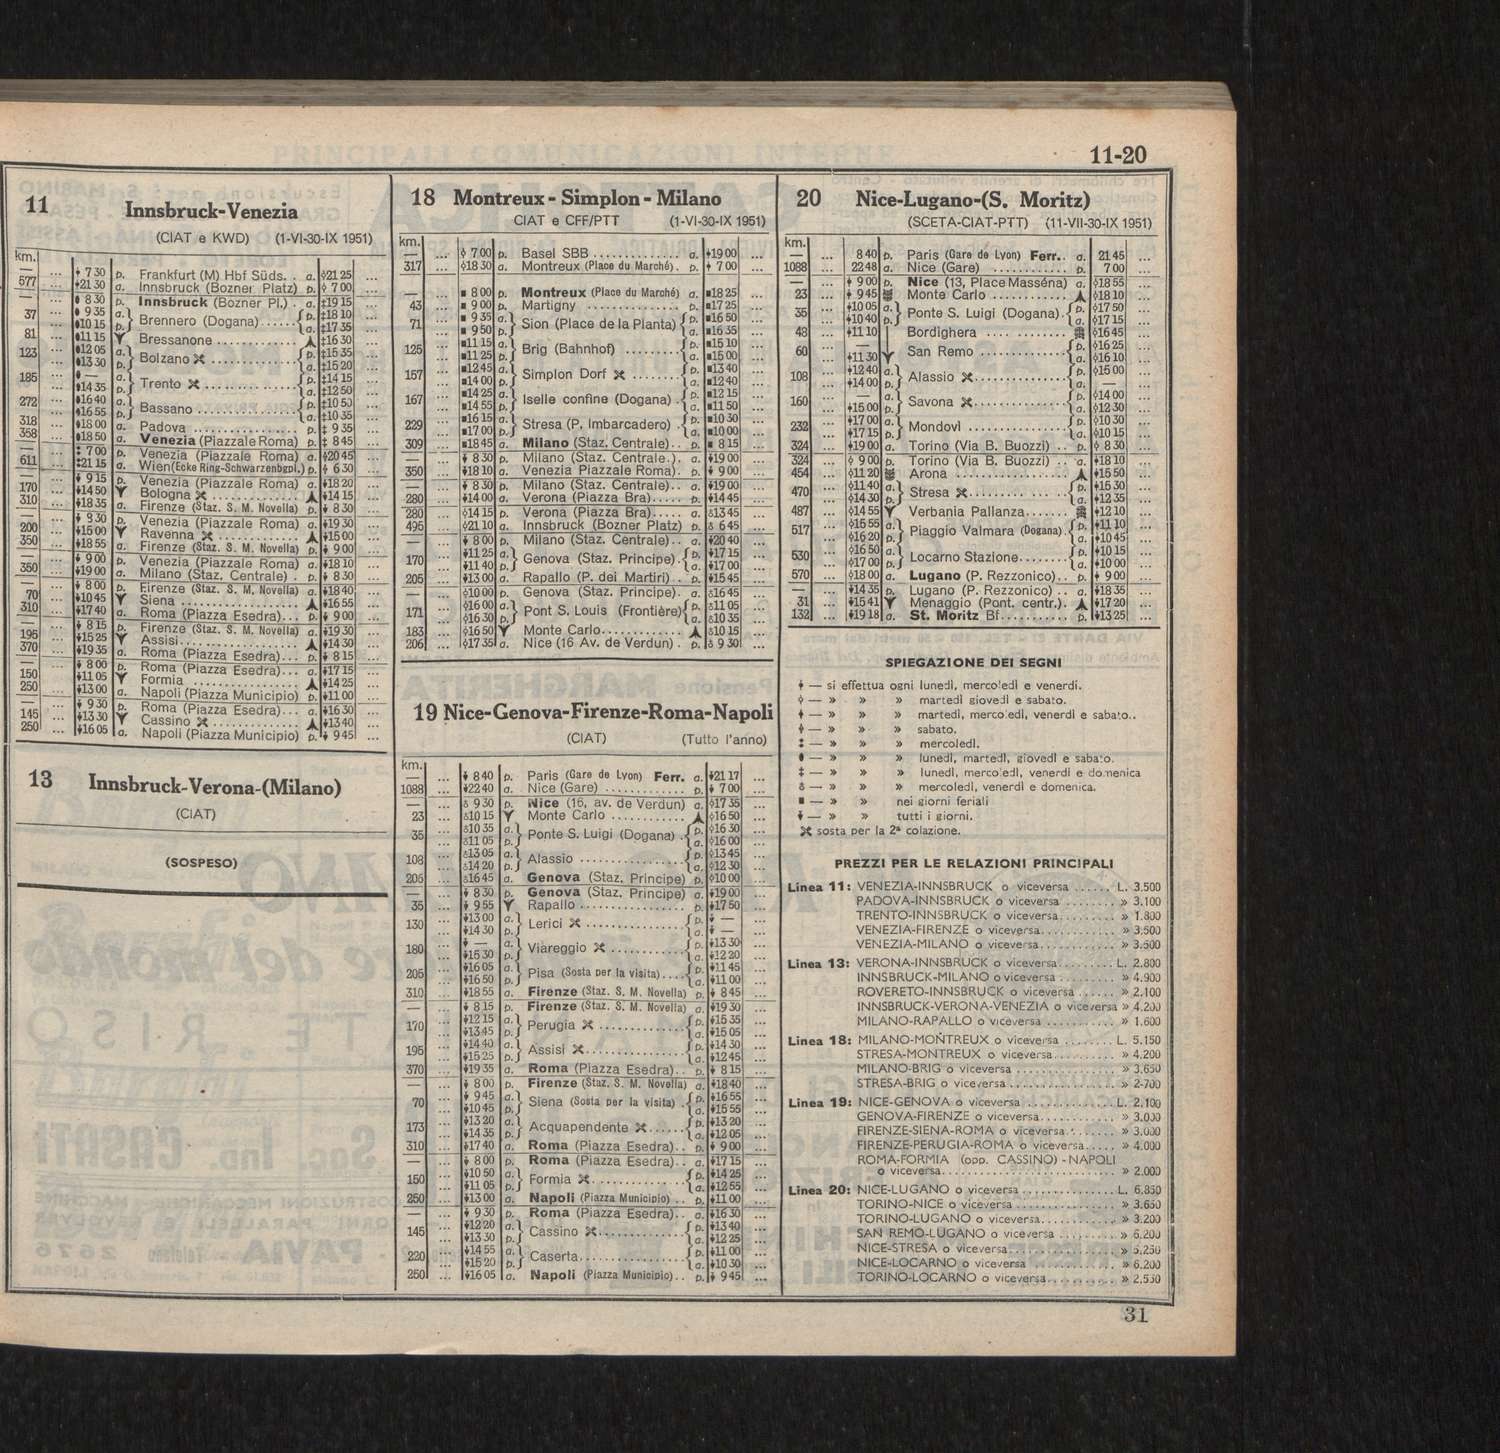 11-20
11 Innsbruck-Venezia
(CIAT e KWD) (1-VI-30-IX 1951)
km.
— ... 7 30 p. Frankfurt (M) Hbf Süds. . a. 21 25 ...
577 ... 21 30 a. Innsbruck (Bozner Platz) p. 7 00 ...
— ... 8 30 p. Innsbruck (Bozner Pl.) . a. 19 15 ...
37 ... 9 35 a. 10 15 p. Brennero (Dogana) ..... p. 18 10 a. 17 35 ...
81 ... 11 15 Bressanone ............ 16 30 ...
123 ... 12 05 a. 13 30 p. Bolzano ............ p. 15 35 a. 15 20 ...
185 ... — a. 14 35 p. Trento ............ p. 14 15 a. 12 50 ...
272 ... 16 40 a. 16 55 p. Bassano ............ p. 10 50 a. 10 35 ...
318 ... 18 00 a. Padova ............... p. 9 35 ...
358 ... 18 50 a. Venezia (Piazzale Roma) p. 8 45 ...
— ... 7 00 p. Venezia (Piazzale Roma) a. 20 45 ...
611 ... 21 15 a. Wien (Ecke Ring-Schwarzenbgpl.) p. 6 30 ...
— ... 9 15 p. Venezia (Piazzale Roma) a. 18 20 ...
170 ... 14 50 Bologna ............ 14 15 ...
310 ... 18 35 a. Firenze (Staz. S. M. Novella) p. 8 30 ...
— ... 9 30 p. Venezia (Piazzale Roma) a. 19 30 ...
200 ... 15 00 Ravenna ............ 15 00 ...
350 ... 18 55 a. Firenze (Staz. S. M. Novella) p. 9 00 ...
— ... 9 00 p. Venezia (Piazzale Roma) a. 18 10 ...
350 ... 19 00 a. Milano (Staz. Centrale) . p. 8 30 ...
— ... 8 00 p. Firenze (Staz. S. M. Novella) a. 18 40 ...
70 ... 10 45 Siena ............... 16 55 ...
310 ... 17 40 a. Roma (Piazza Esedra)... p. 9 00 ...
— ... 8 15 p. Firenze (Staz. S. M. Novella) a. 19 30 ...
195 ... 15 25 Assisi............... 14 30 ...
370 ... 19 35 a. Roma (Piazza Esedra)... p. 8 15 ...
— ... 8 00 p. Roma (Piazza Esedra)... a. 17 15 ...
150 ... 11 05 Formia ............... 14 25 ...
250 ... 13 00 a. Napoli (Piazza Municipio) p. 11 00 ...
— ... 9 30 p. Roma (Piazza Esedra)... a. 16 30 ...
145 ... 13 30 Cassino ............ 13 40 ...
250 ... 16 05 a. Napoli (Piazza Municipio) p. 9 45 ...
13 Innsbruck-Verona-(Milano)
(CIAT)
(SOSPESO)
18 Montreux - Simplon - Milano
CIAT e CFF/PTT (1-VI-30-IX 1951)
km.
— ... 7 00 p. Basel SBB .............. a. 19 00 ...
317 ... 18 30 a. Montreux (Place du Marché) . p. 7 00 ...
— ... 8 00 p. Montreux (Place du Marché) a. 18 25 ...
43 ... 9 00 p. Martigny .............. p. 17 25 ...
71 ... 9 35 a. 9 50 p. Sion (Place de la Planta) p. 16 50 a. 16 35 ...
125 ... 11 15 a. 11 25 p. Brig (Bahnhof) ......... p. 15 10 a. 15 00 ...
157 ... 12 45 a. 14 00 p. Simplon Dorf ........ p. 13 40 a. 12 40 ...
167 ... 14 25 a. 14 55 p. Iselle confine (Dogana) . p. 12 15 a. 11 50 ...
229 ... 16 15 a. 17 00 p. Stresa (P. Imbarcadero) . p. 10 30 a. 10 00 ...
309 ... 18 45 a. Milano (Staz. Centrale) . . p. 8 15 ...
— ... 8 30 p. Milano (Staz. Centrale.) . a. 19 00 ...
350 ... 18 10 a. Venezia Piazzale Roma) . p. 9 00 ...
— ... 8 30 p. Milano (Staz. Centrale) . . a. 19 00 ...
280 ... 14 00 a. Verona (Piazza Bra)..... p. 14 45 ...
280 ... 14 15 p. Verona (Piazza Bra)..... a. 13 45 ...
495 ... 21 10 a. Innsbruck (Bozner Platz) p. 6 45 ...
— ... 8 00 p. Milano (Staz. Centrale) . . a. 20 40 ...
170 ... 11 25 a. 11 40 p. Genova (Staz. Principe) . p. 17 15 a. 17 00 ...
205 ... 13 00 a. Rapallo (P. dei Martiri) . . p. 15 45 ...
— ... 10 00 p. Genova (Staz. Principe) . a. 16 45 ...
171 ... 16 00 a. 16 30 p. Pont S. Louis (Frontière) p. 11 05 a. 10 35 ...
183 ... 16 50 Monte Carlo............ 10 15 ...
206 ... 17 35 a. Nice (16 Av. de Verdun) . p. 9 30 ...
19 Nice-Genova-Firenze-Roma-Napoli
(CIAT) (Tutto l'anno)
km.
— ... 8 40 p. Paris (Gare de Lyon) Ferr. a. 21 17 ...
1088 ... 22 40 a. Nice (Gare) ............ p. 7 00 ...
— ... 9 30 p. Nice (16, av. de Verdun) a. 17 35 ...
23 ... 10 15 Monte Carlo ............ 16 50 ...
35 ... 10 35 a. 11 05 p. Ponte S. Luigi (Dogana) . p. 16 30 a. 16 00 ...
108 ... 13 05 a. 14 20 p. Alassio ............... p. 13 45 a. 12 30 ...
206 ... 16 45 a. Genova (Staz. Principe) p. 10 00 ...
— ... 8 30 p. Genova (Staz. Principe) a. 19 00 ...
35 ... 9 55 Rapallo ............... p. 17 50 ...
130 ... 13 00 a. 14 30 p. Lerici ............ p. — a. — ...
180 ... — a. 15 30 p. Viareggio ............ p. 13 30 a. 12 20 ...
205 ... 16 05 a. 16 50 p. Pisa (Sosta per la visita) .... p. 11 45 a. 11 00 ...
310 ... 18 55 a. Firenze (Staz. S. M. Novella) p. 8 45 ...
— ... 8 15 p. Firenze (Staz. S. M. Novella) a. 19 30 ...
170 ... 12 15 a. 13 45 p. Perugia ............ p. 15 35 a. 15 05 ...
195 ... 14 40 a. 15 25 p. Assisi ............ p. 14 30 a. 12 45 ...
370 ... 19 35 a. Roma (Piazza Esedra) . . p. 8 15 ...
— ... 8 00 p. Firenze (Staz. S. M. Novella) a. 18 40 ...
70 ... 9 45 a. 10 45 p. Siena (Sosta per la visita) . p. 16 55 a. 15 55 ...
173 ... 13 20 a. 14 35 p. Acquapendente ...... p. 13 20 a. 12 05 ...
310 ... 17 40 a. Roma (Piazza Esedra) . . p. 9 00 ...
— ... 8 00 p. Roma (Piazza Esedra) . . a. 17 15 ...
150 ... 10 50 a. 11 05 p. Formia ............ p. 14 25 a. 12 55 ...
250 ... 13 00 a. Napoli (Piazza Municipio) . . p. 11 00 ...
— ... 9 30 p. Roma (Piazza Esedra) . . a. 16 30 ...
145 ... 12 20 a. 13 30 p. Cassino ............ p. 13 40 a. 12 25 ...
220 ... 14 55 a. 15 20 p. Caserta............... p. 11 00 a. 10 30 ...
250 ... 16 05 a. Napoli (Piazza Municipio) . . p. 9 45 ...
20 Nice-Lugano-(S. Moritz)
(SCETA-CIAT-PTT) (11-VII-30-IX 1951)
km.
— ... 8 40 p. Paris (Gare de Lyon) Ferr. . a. 21 45 ...
1088 ... 22 48 a. Nice (Gare) ............ p. 7 00 ...
— ... 9 00 p. Nice (13, Place Masséna) a. 18 55 ...
23 ... 9 45 Monte Carlo ............ 18 10 ...
35 ... 10 05 a. 10 40 p. Ponte S. Luigi (Dogana) . p. 17 50 a. 17 15 ...
48 ... 11 10 Bordighera .......... 16 45 ...
60 ... — 11 30 San Remo ............ p. 16 25 a. 16 10 ...
108 ... 12 40 a. 14 00 p. Alassio ............ p. 15 00 a. — ...
160 ... — 15 00 p. Savona ............ p. 14 00 a. 12 30 ...
232 ... 17 00 a. 17 15 p. Mondovì ............... p. 10 30 a. 10 15 ...
324 ... 19 00 a. Torino (Via B. Buozzi) . . p. 8 30 ...
324 ... 9 00 p. Torino (Via B. Buozzi) . . a. 18 10 ...
454 ... 11 20 Arona ............... 15 50 ...
470 ... 11 40 a. 14 30 p. Stresa ............ p. 15 30 a. 12 35 ...
487 ... 14 55 Verbania Pallanza....... 12 10 ...
517 ... 15 55 a. 16 20 p. Piaggio Valmara (Dogana) p. 11 10 a. 10 45 ...
530 ... 16 50 a. 17 00 p. Locarno Stazione....... p. 10 15 a. 10 00 ...
570 ... 18 00 a. Lugano (P. Rezzonico) . . p. 9 00 ...
— ... 14 35 p. Lugano (P. Rezzonico) . . a. 18 35 ...
31 ... 15 41 Menaggio (Pont. centr.) . 17 20 ...
132 ... 19 18 a. St. Moritz Bf........... p. 13 25 ...
SPIEGAZIONE DEI SEGNI
— si effettua ogni lunedì, mercoledì e venerdì.
— » » » martedì giovedì e sabato.
— » » » martedì, mercoledì, venerdì e sabato..
— » » » sabato.
— » » » mercoledì.
— » » » lunedì, martedì, giovedì e sabato.
— » » » lunedì, mercoledì, venerdì e domenica
— » » » mercoledì, venerdì e domenica.
— » » nei giorni feriali
— » » tutti i giorni.
sosta per la 2ª colazione.
PREZZI PER LE RELAZIONI PRINCIPALI
Linea 11: VENEZIA-INNSBRUCK o viceversa ...... L. 3.500
PADOVA-INNSBRUCK o viceversa ....... » 3.100
TRENTO-INNSBRUCK o viceversa......... » 1.800
VENEZIA-FIRENZE o viceversa............ » 3.500
VENEZIA-MILANO o viceversa............ » 3.500
Linea 13: VERONA-INNSBRUCK o viceversa ......... L. 2.800
INNSBRUCK-MILANO o viceversa ......... » 4.900
ROVERETO-INNSBRUCK o viceversa ...... » 2.100
INNSBRUCK-VERONA-VENEZIA o viceversa » 4.200
MILANO-RAPALLO o viceversa ........... » 1.600
Linea 18: MILANO-MONTREUX o viceversa ........ L. 5.150
STRESA-MONTREUX o viceversa.......... » 4.200
MILANO-BRIG o viceversa ............... » 3.650
STRESA-BRIG o viceversa................ » 2-700
Linea 19: NICE-GENOVA o viceversa .............. L. 2.100
GENOVA-FIRENZE o viceversa............ » 3.000
FIRENZE-SIENA-ROMA o viceversa ....... » 3.000
FIRENZE-PERUGIA-ROMA o viceversa ..... » 4.000
ROMA-FORMIA (opp. CASSINO) - NAPOLI
o viceversa........................... » 2.000
Linea 20: NICE-LUGANO o viceversa ............... L. 6.850
TORINO-NICE o viceversa................ » 3.650
TORINO-LUGANO o viceversa............. » 3.200
SAN REMO-LUGANO o viceversa .......... » 6.200
NICE-STRESA o viceversa................. » 5.250
NICE-LOCARNO o viceversa .............. » 6.200
TORINO-LOCARNO o viceversa............ » 2.550
31